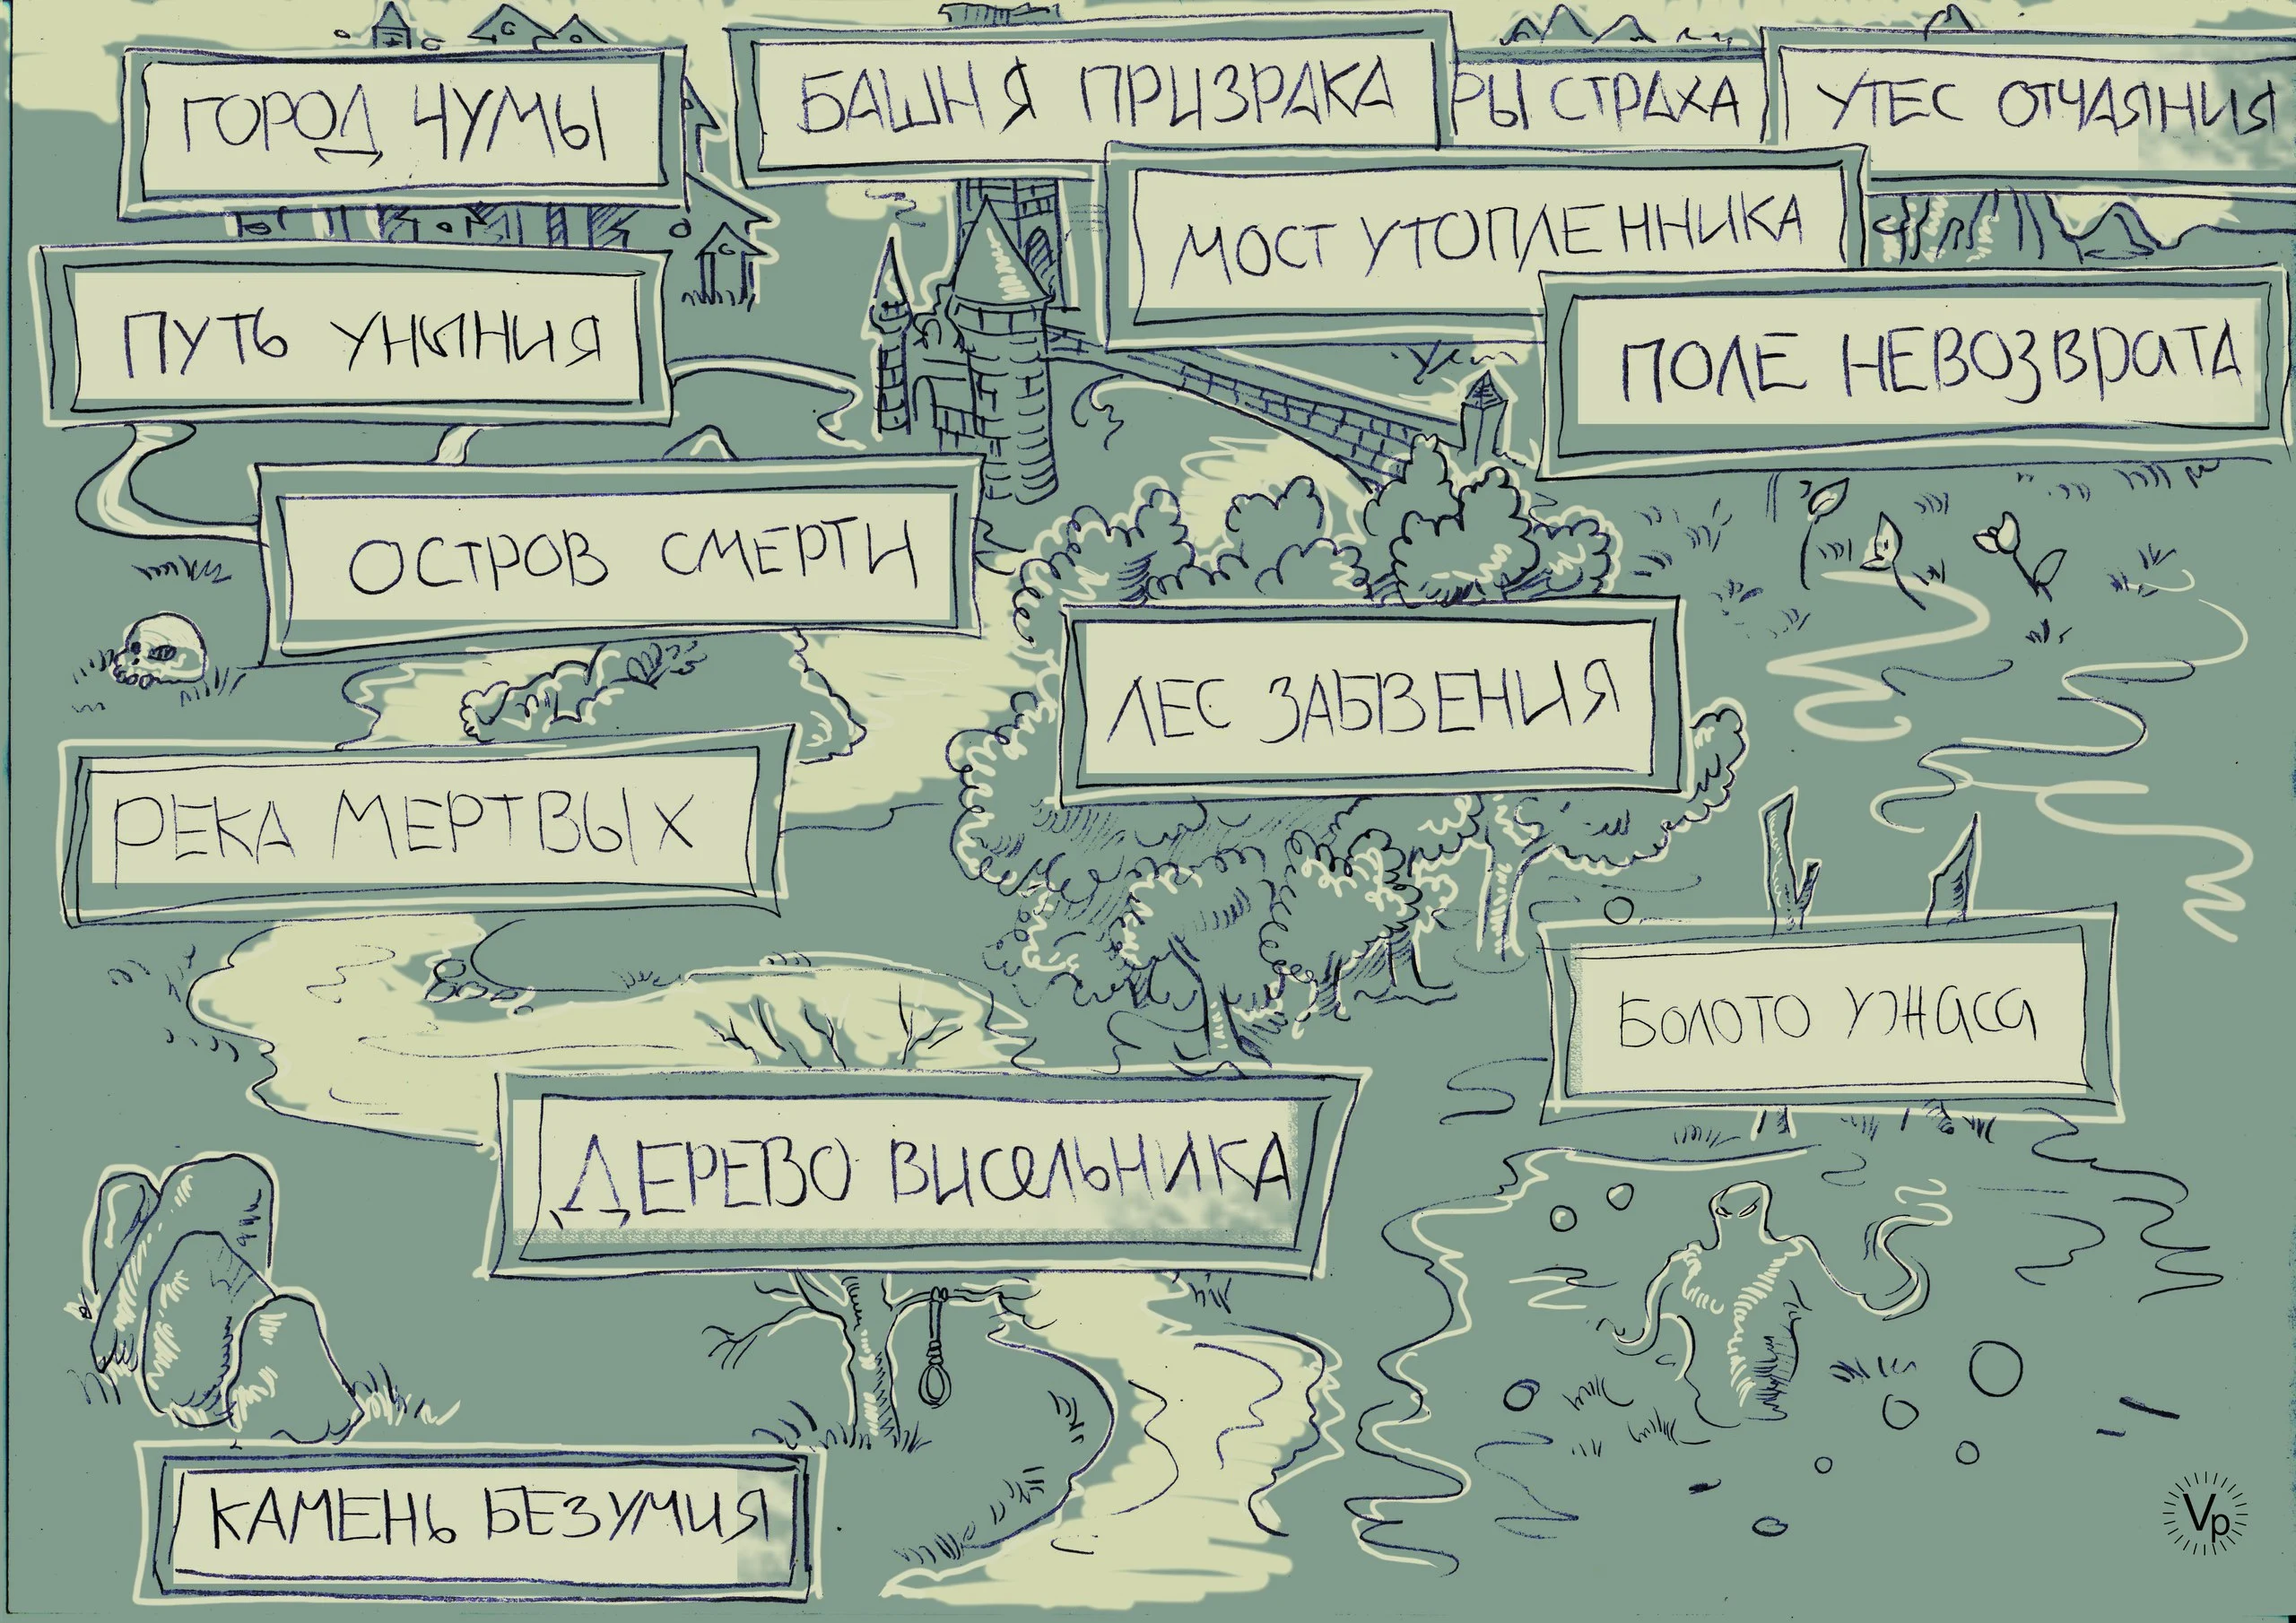 ГОРОД ЧУМЫ
БАШНЯ ПРИЗРАКА
РЫ СТРАХА
УТЕС ОТЧАЯНИЯ
МОСТ УТОПЛЕННИКА
ПУТЬ УНЫНИЯ
ПОЛЕ НЕВОЗВРАТА
ОСТРОВ СМЕРТИ
ЛЕС ЗАБВЕНИЯ
РЕКА МЕРТВЫХ
БОЛОТО УЖАСА
ДЕРЕВО ВИСЕЛЬНИКА
КАМЕНЬ БЕЗУМИЯ
Vp